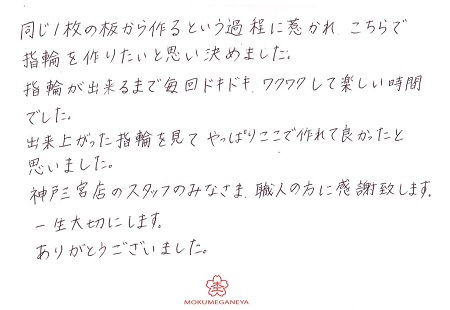 同じ1枚の板から作るという過程に惹かれ、こちらで
指輪を作りたいと思い決めました。
指輪が出来るまで毎回ドキドキ、ワクワクして楽しい時間
でした。
出来上がった指輪を見て やっぱりここで作れて良かったと
思いました。
神戸三宮店のスタッフのみなさま、職人の方に感謝致します。
一生大切にします。
ありがとうございました。
MOKUMEGANEYA